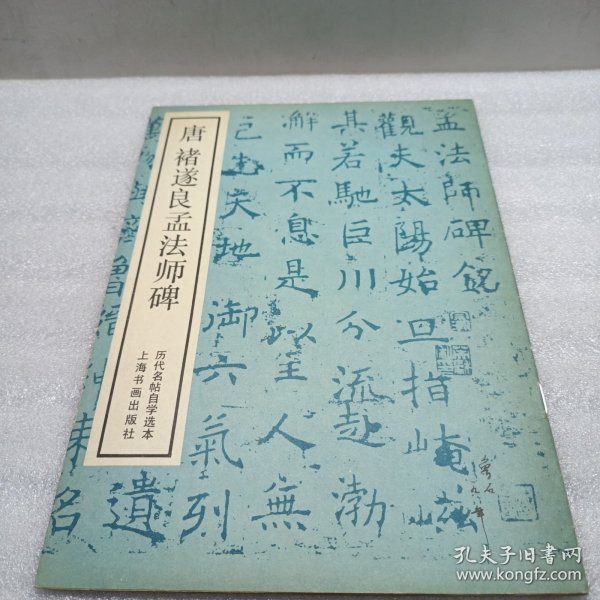 唐 褚遂良孟法师碑
历代名帖自学选本
上海书画出版社
孟法師碑銘
觀夫太陽始旦指崦嵫
其若馳巨川分流赴渤
澥而不息是以至人無
己
天地御六氣
列
遺
名
孔夫子旧书网
www.kongfz.com